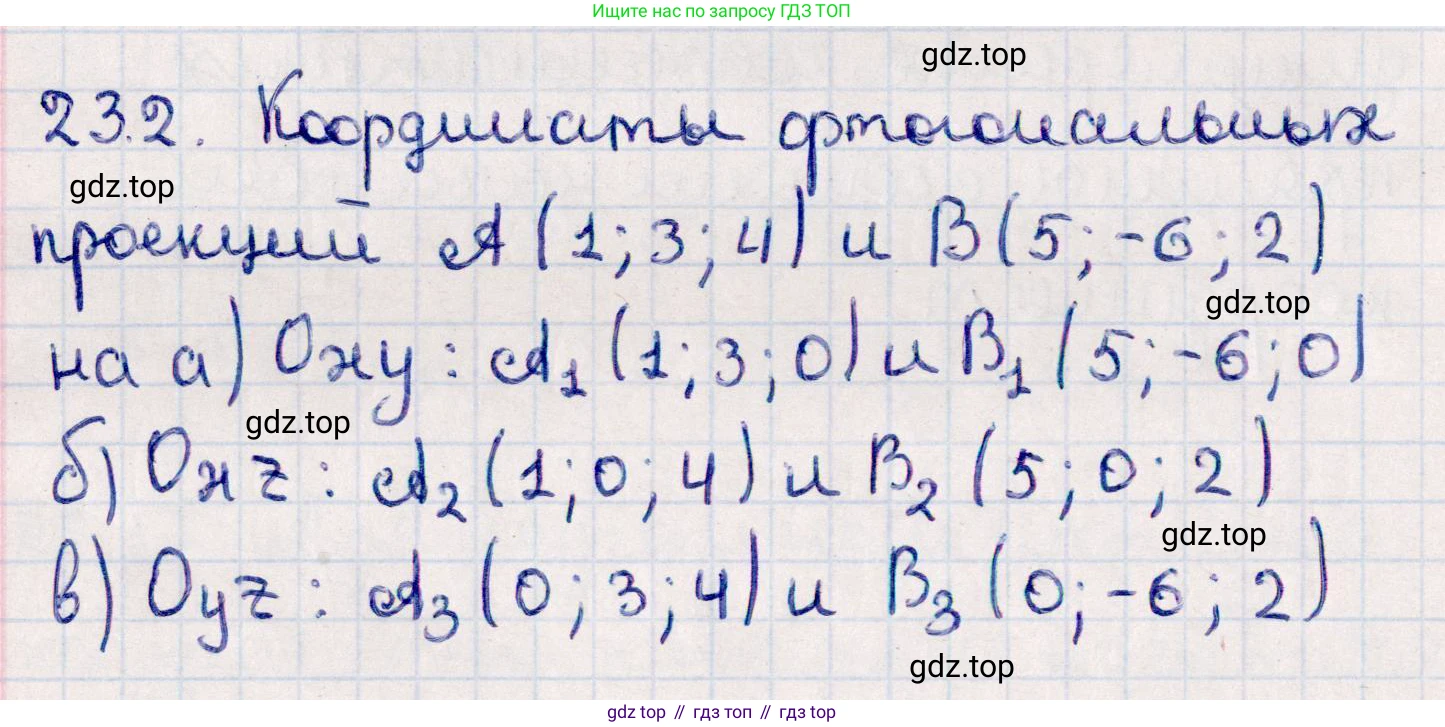 Ищите нас по запросу ГДЗ ТОП
gdz.top
23.2. Координаты ортогональных
gdz.top
проекций A (1; 3; 4) и B (5; -6; 2)
gdz.top
на а) Oxy : A₁ (1; 3; 0) и B₁ (5; -6; 0)
gdz.top
б) Oxz : A₂ (1; 0; 4) и B₂ (5; 0; 2)
gdz.top
в) Oyz : A₃ (0; 3; 4) и B₃ (0; -6; 2)
gdz.top
gdz top // гдз топ // гдз top